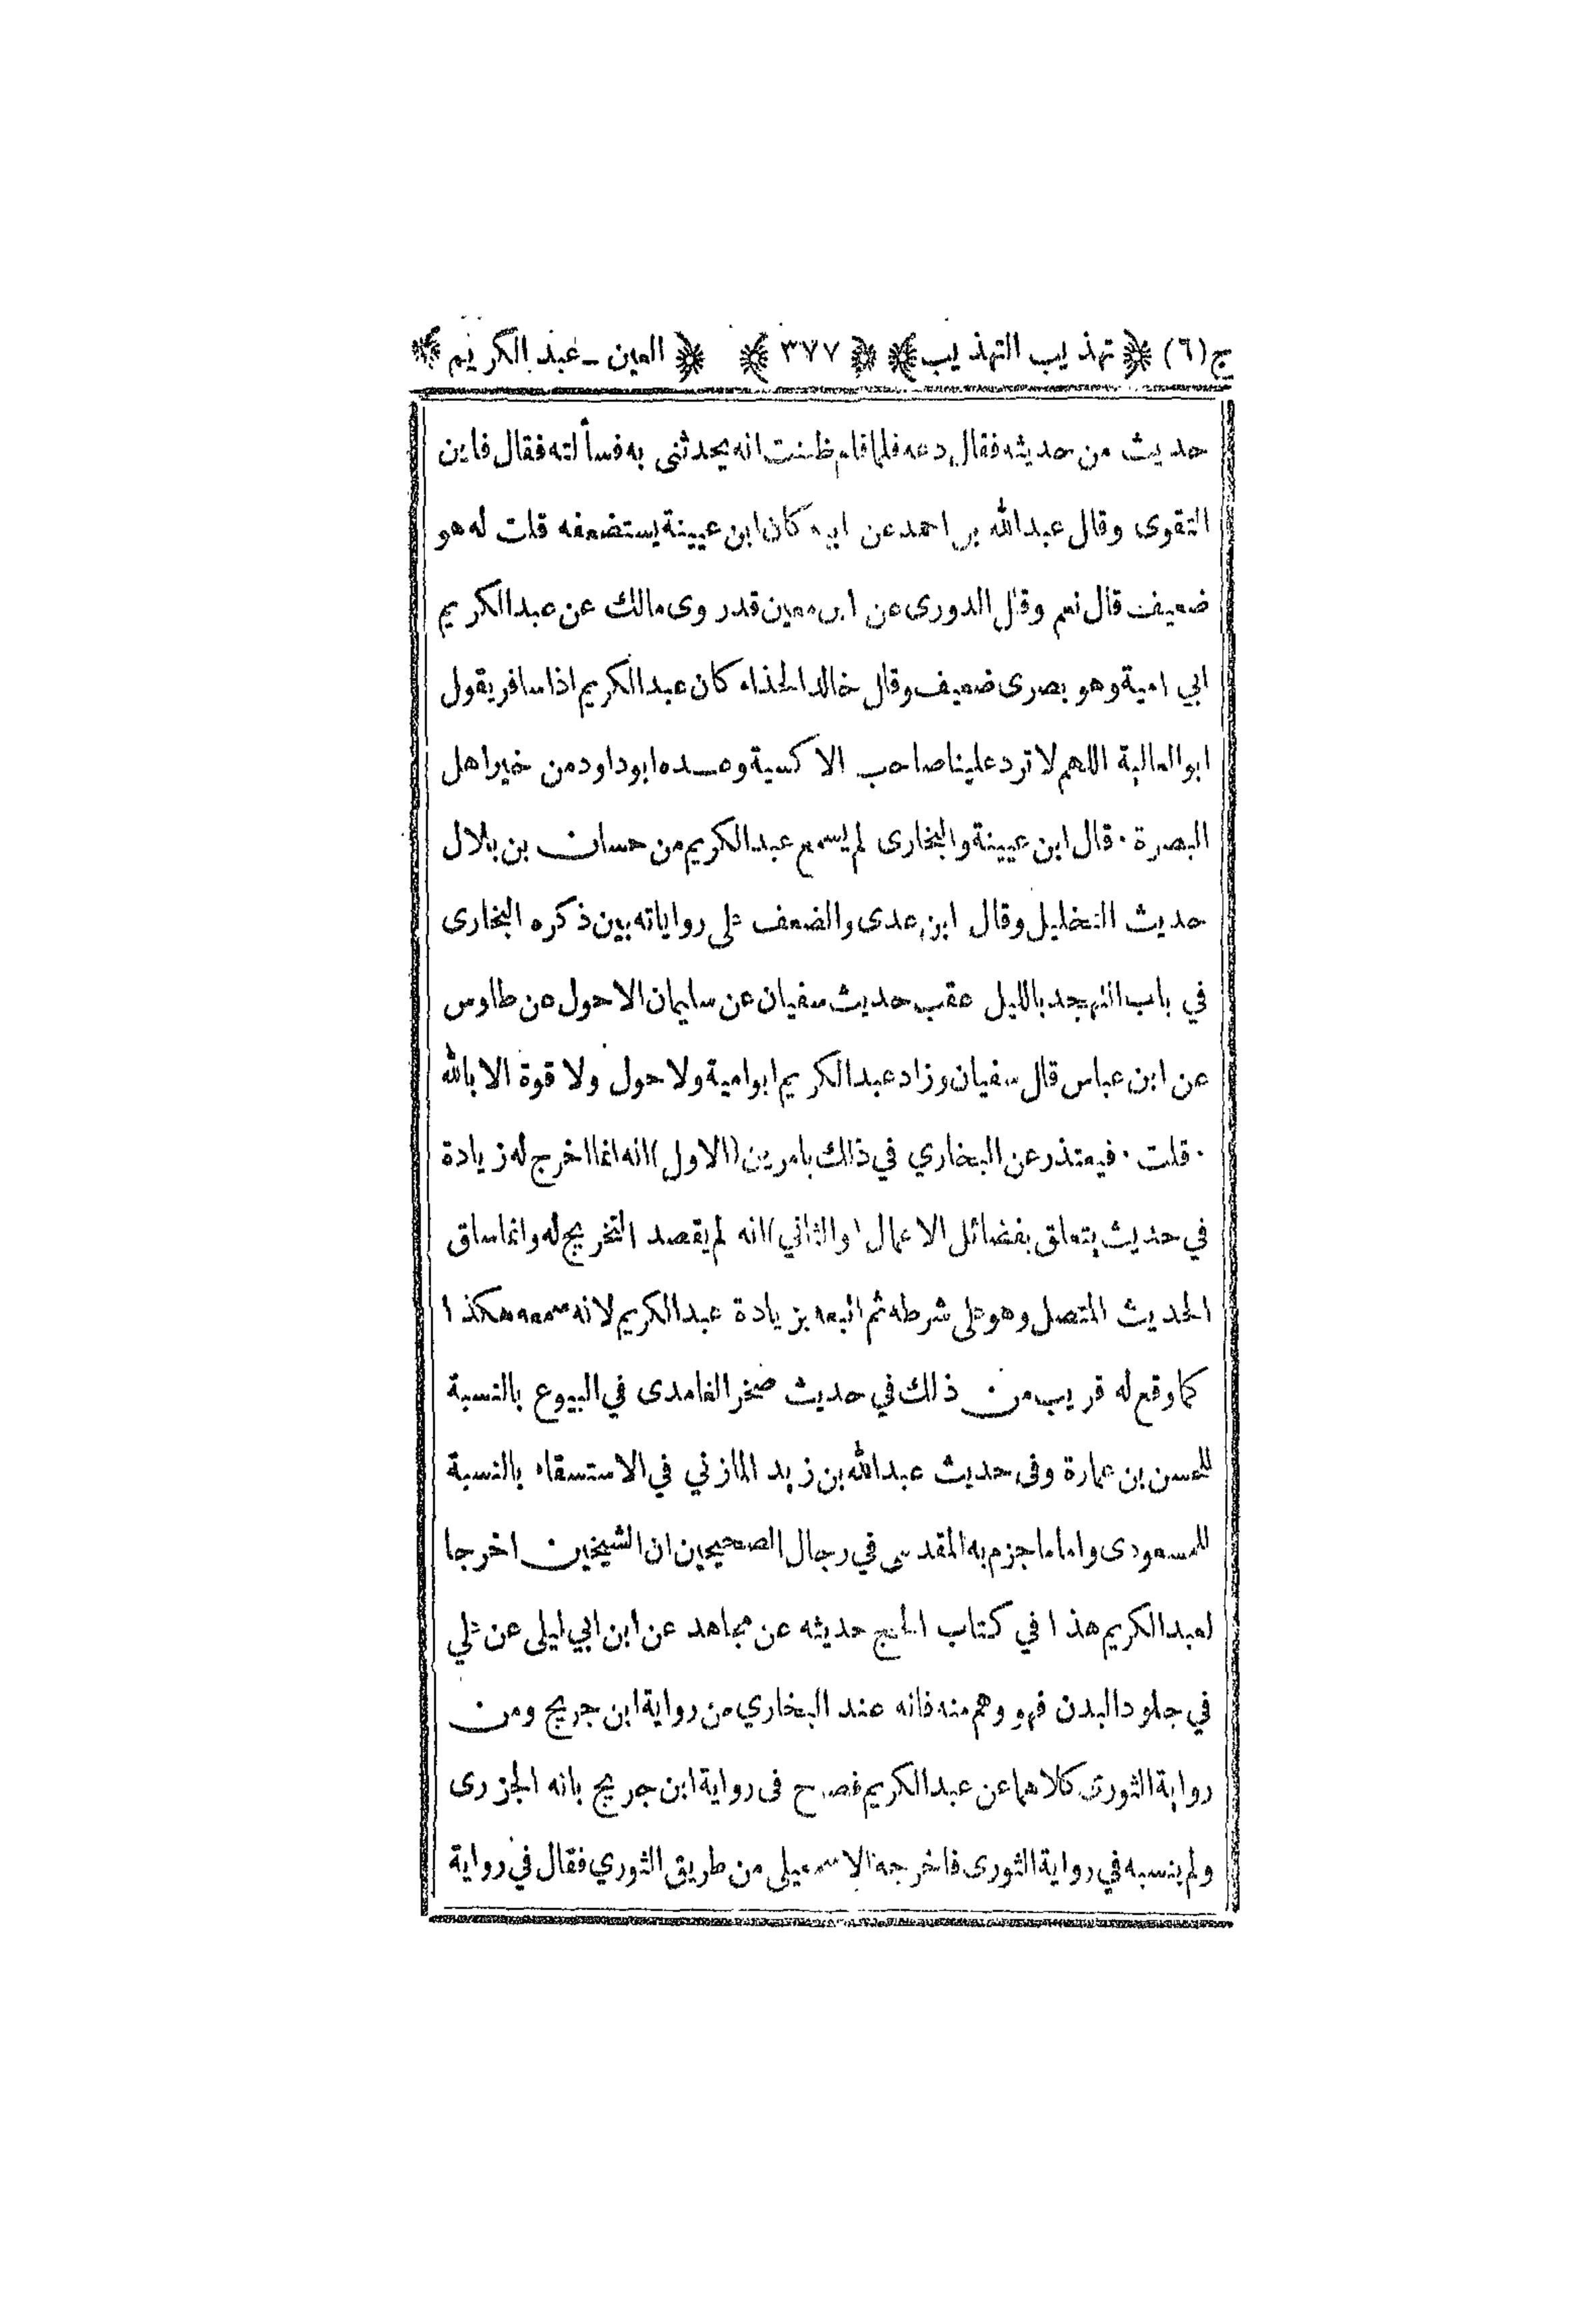 ج(٦) ﴿ تهذيب التهذيب ﴾ ﴿ ٣٧٧ ﴾ ﴿ العين - عبد الكريم ﴾
حديث من حديثه فقال دعه فلما قام ظننت انه يحدثنى به فسألته فقال فاين
التقوى وقال عبدالله بن احمد عن ابيه كان ابن عيينة يستضعفه قلت له هو
ضعيف قال نعم وقال الدورى عن ابن معين قدروى مالك عن عبدالكريم
ابي امية وهو بصرى ضعيف وقال خالد الحذاء كان عبدالكريم اذا سافر يقول
ابوالعالية اللهم لا ترد علينا صاحب الاكسية وعده ابوداود من خيراهل
البصرة · قال ابن عيينة والبخارى لم يسمع عبدالكريم من حسان بن بلال
حديث التخليل وقال ابن عدى والضعف على رواياته بين ذكره البخارى
في باب التهجد بالليل عقب حديث سفيان عن سليمان الاحول عن طاوس
عن ابن عباس قال سفيان وزاد عبدالكريم ابوامية ولاحول ولا قوة الا بالله
· قلت · فيعتذر عن البخاري في ذلك بامرين (الاول) انه انما اخرج له زيادة
في حديث يتعلق بفضائل الاعمال (والثاني) انه لم يقصد التخريج له وانما ساق
الحديث المتصل وهو على شرطه ثم اتبعه بزيادة عبدالكريم لانه سمعه هكذا
كما وقع له قريب من ذلك في حديث صخر الغامدى في البيوع بالنسبة
للحسن بن عمارة وفى حديث عبدالله بن زيد المازني في الاستسقاء بالنسبة
للمسعودى واما ما جزم به المقدسي في رجال الصحيحين ان الشيخين اخرجا
لعبدالكريم هذا في كتاب الحج حديثه عن مجاهد عن ابن ابي ليلى عن علي
في جلود البدن فهو وهم منه فانه عند البخاري من رواية ابن جريج ومن
رواية الثورى كلاهما عن عبدالكريم فصرح فى رواية ابن جريج بانه الجزرى
ولم ينسبه في رواية الثورى فاخرجه الاسمعيلى من طريق الثوري فقال في رواية